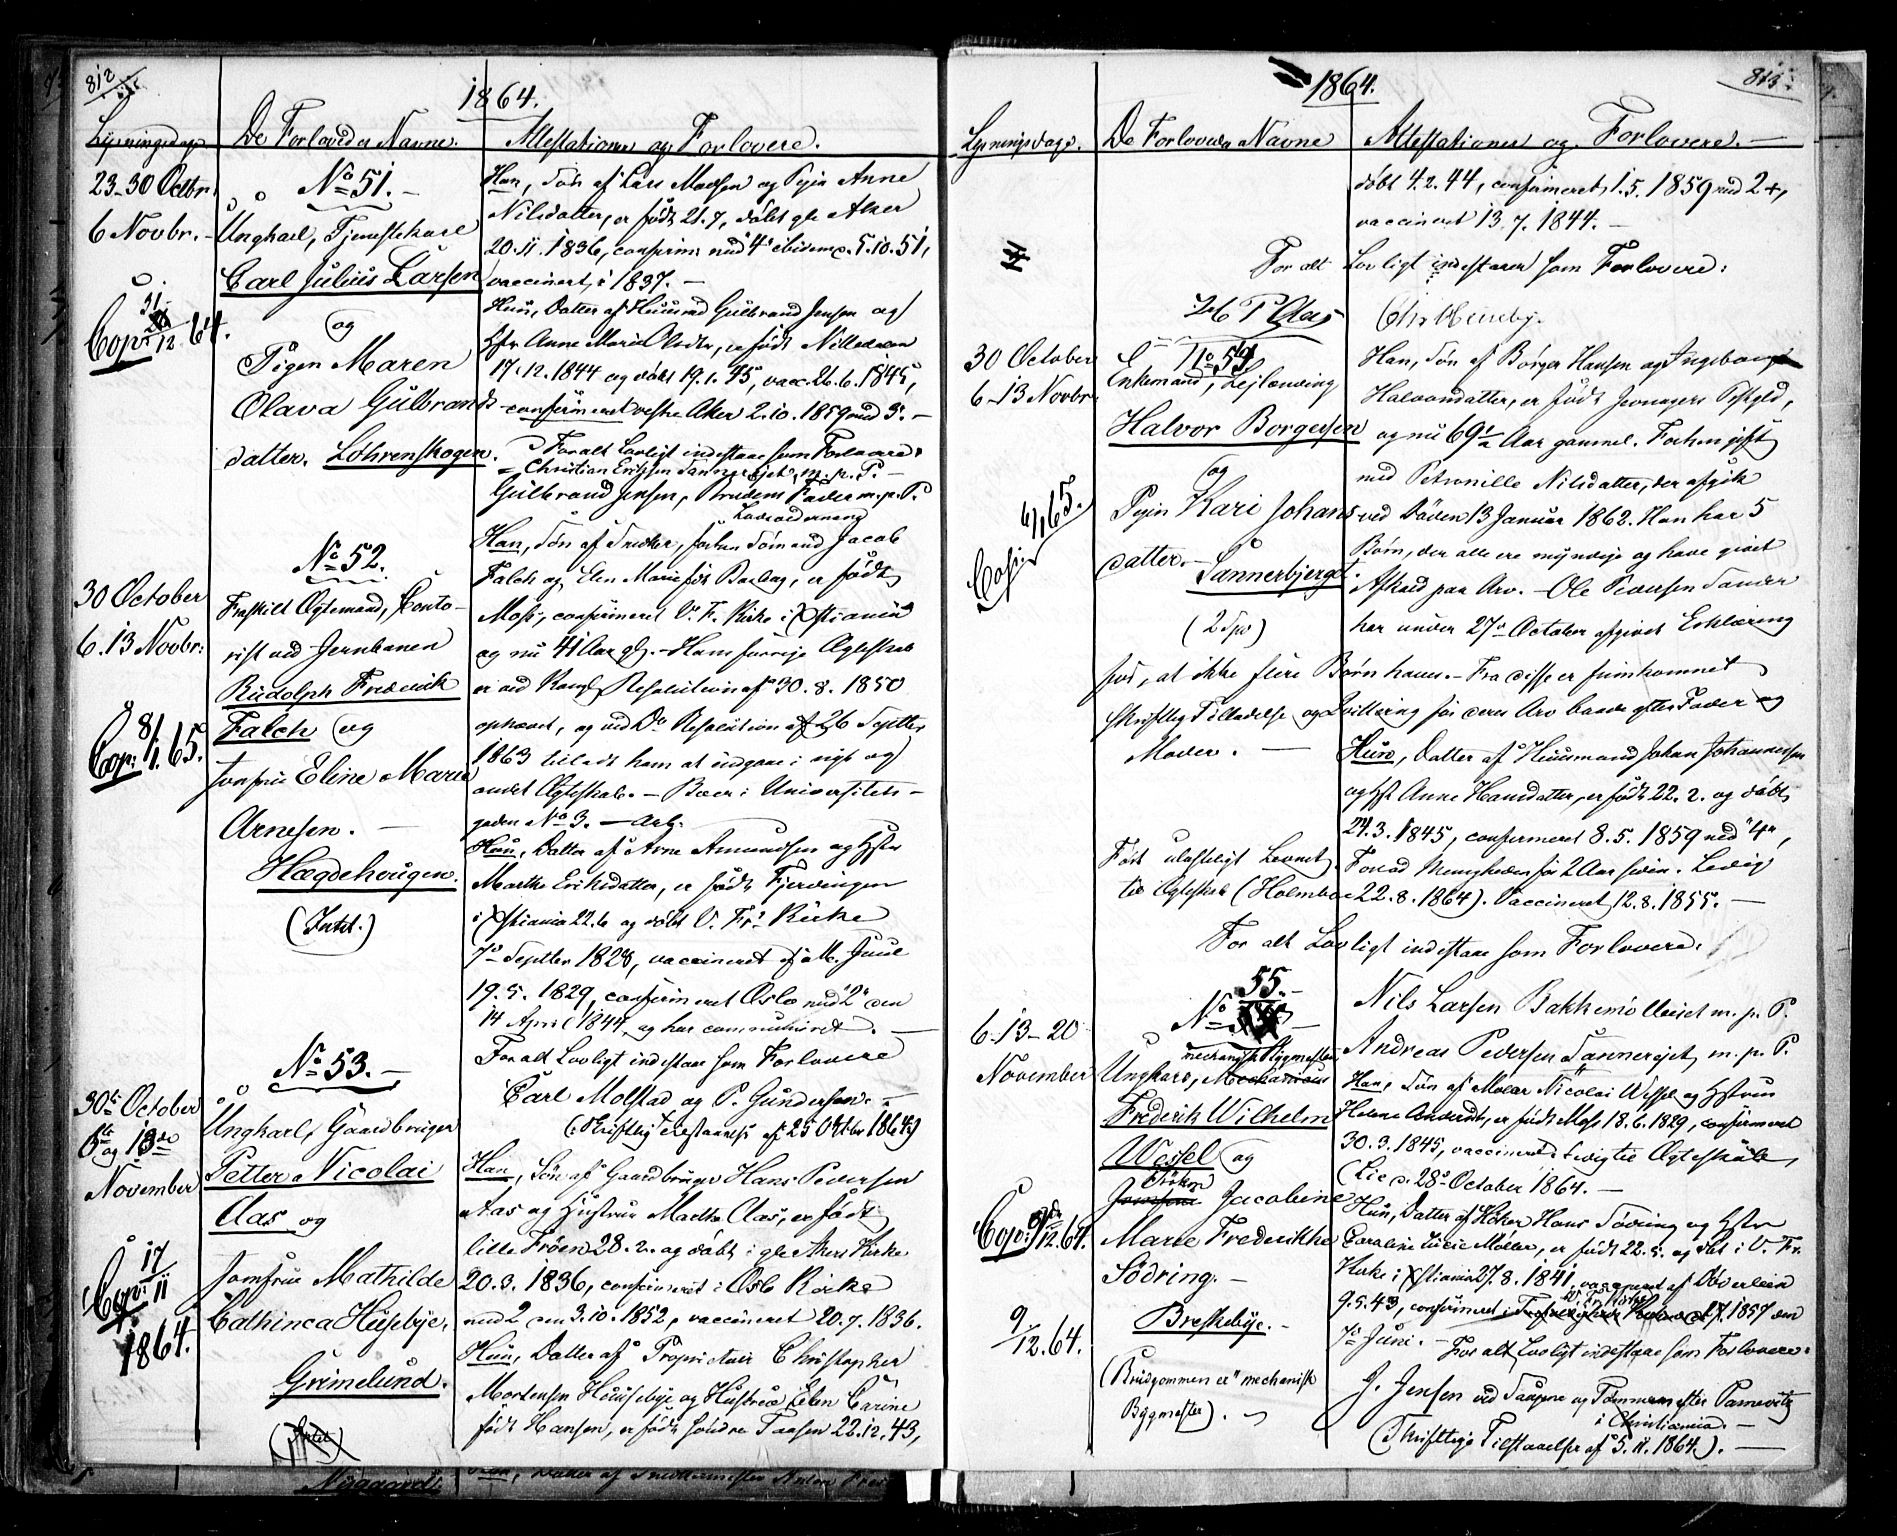 812
1864.
Lysningsdage
De Forlovedes Navne.
Attestationer og Forlovere.
23-30 Octbr.
6 Novbr. -
Cop. 31/12 64.
No 51. -
Ungkarl, Tjenestekarl
Carl Julius Larsen
og
Pigen Maren
Olava Gulbrands
datter. Løhrenskogen.
Han, Søn af Lars Madsen og Pigen Anne
Nilsdatter, er født 21.7, døbt gle Aker
20.11.1836, confirm. med "4" ibidem c. 5.10.51,
vaccineret i 1837. -
Hun, Datter af Huusmd Gulbrand Jensen og
Hstr Anne Marie Olsdtr, er født Nittedalen
17.12.1844 og døbt 19.1.45, vacc. 26.6.1845,
confirmeret vestre Aker 2.10.1859 med 3. -
For alt Lovligt indestaae som Forlovere:
Christian Ericksen Tannerøjet, m.p.P. -
Gulbrand Jensen, Brudens Fader m.p.P.
30 October
6. 13 Novbr:
Cop. 8/1. 65.
No 52.
Fraskilt Ægtemand, Conto-
rist ved Jernbanen
Rudolph Frederik
Falch og
Jomfru Eline Marie
Arnesen. -
Hægdehougen.
(Intet.)
Han, Søn af Snedker, forhen Sømand Jacob
Falch og Elen Marie født Barbag, er født
Moss, confirmeret V. F. Kirke i Xstiania
og nu 41 Aar gl. - Hans forrige Ægteskab
er ved Kongl. Resolution af 30.8.1850
ophævet, og ved Do Resolution af 26 Septbr
1863 tilladt ham at indgaae i nyt og
andet Ægteskab. - Boer i Universitets-
gaden No 3. - Arb.
Hun, Datter af Arne Amundsen og Hstr
Marthe Eriksdatter, er født Fjerdingen
i Xstiania 22.6 og døbt V. Frs Kirke
7de Septbr 1828, vaccineret af M. Juul
19.5.1829, confirmeret Oslo med "2" den
14 April 1844, og har communiceret. -
For alt Lovligt indestaae som Forlovere
Carl Molstad og P. Gundersen. -
(Skriftlig Tilstaaelse af 25 Octbr 1864)
30te October
6te og 13de
November
Cop. 17/11
1864.
No 53. -
Ungkarl, Gaardbruger
Petter Nicolai
Aas og
Jomfrue Mathilde
Cathinca Huseby,
Grimelund.
(Intet)
Han, Søn af Gaardbruger Hans Pedersen
Aas og Hustrue Marthe Aas, er født
lille Frøen 28.2. og døbt i gle Akers Kirke
20.3.1836, confirmeret i Oslo Kirke
med 2 den 3.10.1852, vaccineret 20.7.1836.
Hun, Datter af Proprietair Christopher
Mortensen Huuseby og Hustrue Elen Carine
født Hansen, er født søndre Taasen 22.12.43,
813.
1864.
Lysningsdage.
De Forlovedes Navne
Attestationer og Forlovere. -
døbt 4.2.44, confirmeret 1.5.1859 med 2+,
vaccineret 13.7.1844. -
For alt Lovligt indestaaer som Forlovere:
P Aas
Chr Huseby.
30 October
6-13 Novbr.
Cop. 6/1 65.
No 54
Enkemand, Lejlænding
Halvor Borgersen
og
Pigen Kari Johans
datter. -
Tannerbjerget.
(2 Spd)
Han, Søn af Børger Hansen og Ingeborg
Halvorsdatter, er født Jevnagers Pstgld,
og nu 69½ Aar gammel. Forhen gift
med Petronille Nilsdatter, der afgik
ved Døden 13 Januar 1862. Han har 5
Børn, der alle ere myndige og have givet
Afkald paa Arv. - Ole Pedersen Sander
har under 27de October afgivet Erklæring
for, at ikke flere Børn haves. - Fra disse er fremkommet
skriftlig Tilladelse og Qvittering for deres Arv baade efter Fader og
Moder. -
Hun, Datter af Huusmand Johan Johannesen
og Hst Anne Hansdatter, er født 22.2. og døbt
24.3.1845, confirmeret 8.5.1859 med "4",
Ført ulasteligt Levnet. Forlod Menigheden for 2 Aar siden. Ledig
til Ægteskab (Holmboe 22.8.1864). Vaccineret 12.8.1855. -
For alt Lovligt indestaae som Forlovere:
Nils Larsen Bakkemøllejet m.p.P.
Andreas Pedersen Tannerejet, m.p.P.
6-13-20
November
Cop. 9/12 64.
9/12.64.
55. -
No
mechanisk Bygmester
Ungkarl, Mechanicus
Frederik Wilhelm
Wessel og
Frøken
Jomfrue Jacobine
Marie Frederikke
Södring. -
Breskebye. -
(Brudgommen er "mechanisk
Bygmester).
Han, Søn af Maler Nicolai Wessel og Hstrue
Helene Andersdtr, er født Moss 18.6.1829, confirmeret
30.3.1845, vaccineret. Ledig til Ægteskab,
(Lie d. 28de October 1864. -
Hun, Datter af Høker Hans Södring og Hstr
Caroline Lucie Møller, er født 22.5. og døbt i V. Fr.
Kirke i Xstiania 27.8.1841, vaccineret af Døderlein
9.5.43, confirmeret i V. Frs Kirke 1857 den
7de Juni. - For alt Lovligt indestaae som Forlovere:
J. Jensen ved Saugene og Tømmermester Pamevitz
i Christiania. -
(Skriftlige Tilstaaelser af 5.11.1864). -